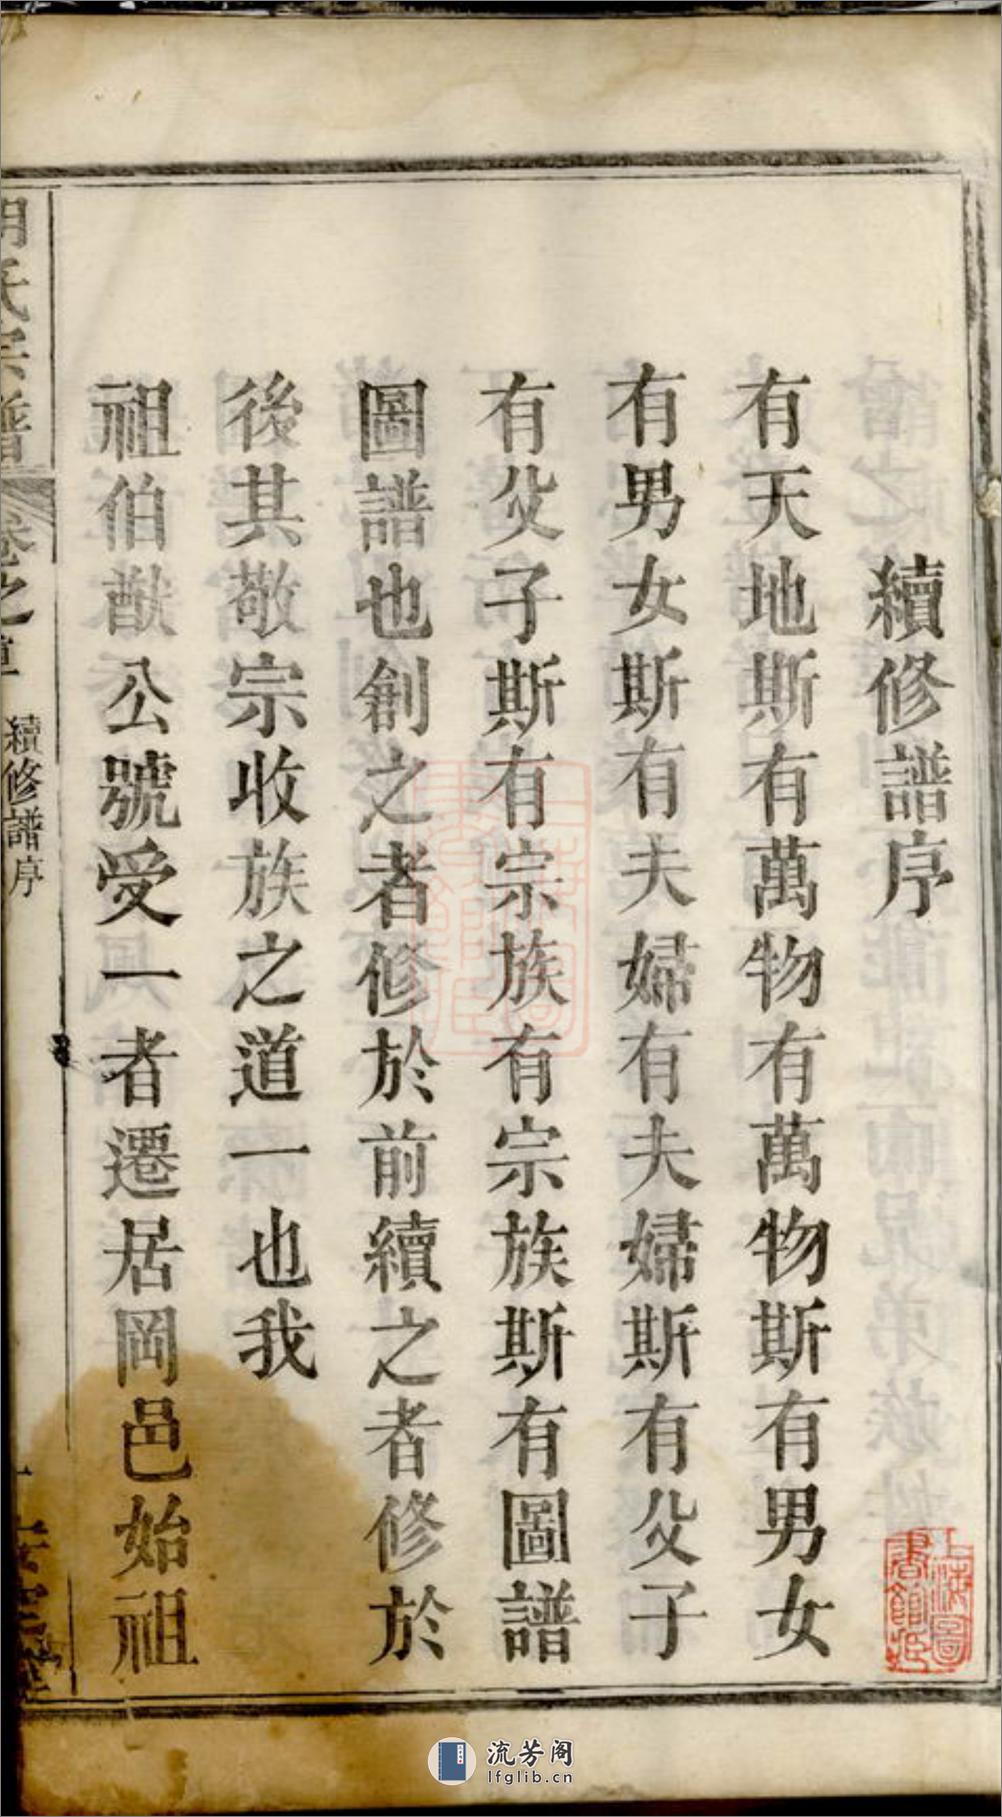 續修譜序
有天地斯有萬物有萬物斯有男女
有男女斯有夫婦有夫婦斯有父子
有父子斯有宗族有宗族斯有圖譜
圖譜也創之者修於前續之者修於
後其敬宗收族之道一也我
祖伯猷公號受一者遷居岡邑始祖
氏宗譜
卷之
續修譜序
上海圖書館藏
流芳阁
lfglib.cn